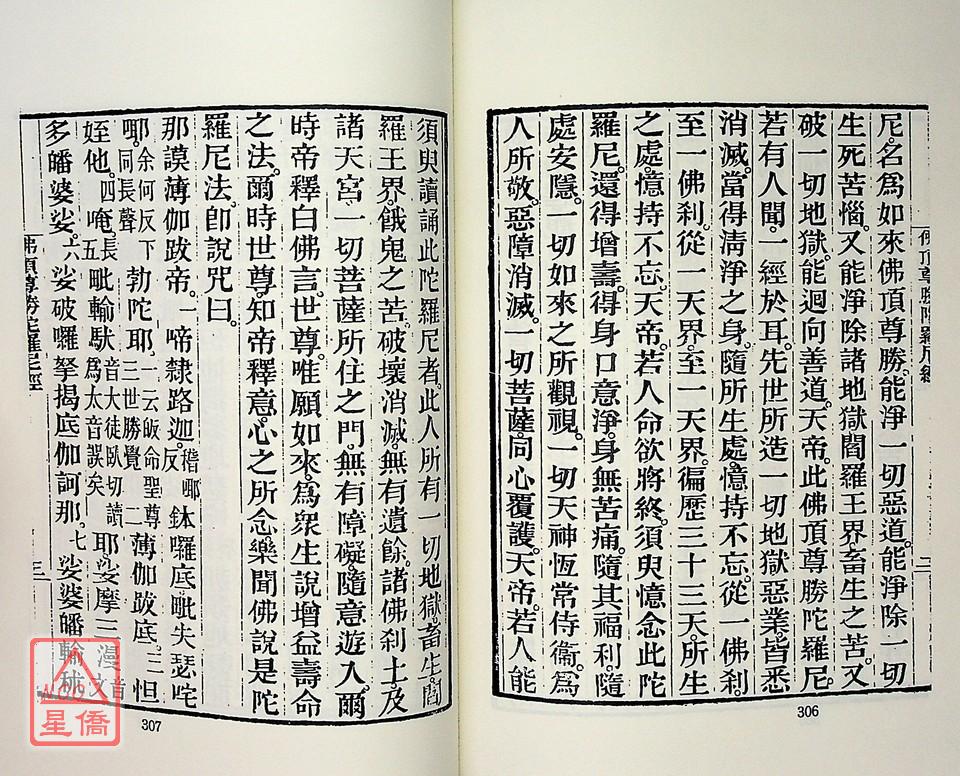 尼。名爲如來佛頂尊勝。能淨一切惡道。能淨除一切
生死苦惱。又能淨除諸地獄閻羅王界畜生之苦。又
破一切地獄。能迴向善道。天帝。此佛頂尊勝陀羅尼。
若有人聞。一經於耳。先世所造一切地獄惡業。皆悉
消滅。當得淸淨之身。隨所生處。憶持不忘。從一佛刹。
至一佛刹。從一天界。至一天界。徧歷三十三天。所生
之處。憶持不忘。天帝。若人命欲將終。須臾憶念此陀
羅尼。還得增壽。得身口意淨。身無苦痛。隨其福利。隨
處安隱。一切如來之所觀視。一切天神恆常侍衞。爲
人所敬。惡障消滅。一切菩薩。同心覆護。天帝。若人能
佛頂尊勝陀羅尼經
二
306
須臾讀誦此陀羅尼者。此人所有一切地獄。畜生。閻
羅王界。餓鬼之苦。破壞消滅。無有遺餘。諸佛刹土。及
諸天宮。一切菩薩所住之門。無有障礙。隨意遊入。爾
時帝釋白佛言。世尊。唯願如來。爲衆生說增益壽命
之法。爾時世尊。知帝釋意。心之所念。樂聞佛說是陀
羅尼法。卽說咒曰。
那謨薄伽跋帝。一啼隸路迦。稽耶反鉢囉底毗失瑟咤
耶。余何反下同長聲勃陀耶。一云皈命聖尊三世勝覺二薄伽跋底。三怛
姪他。四唵長五毗輸馱音大徒臥切讀爲太音誤矣耶。娑摩三漫
多皤婆娑。六娑破囉拏揭底伽訶那。七娑婆皤輸秫
佛頂尊勝陀羅尼經
三
307
星僑